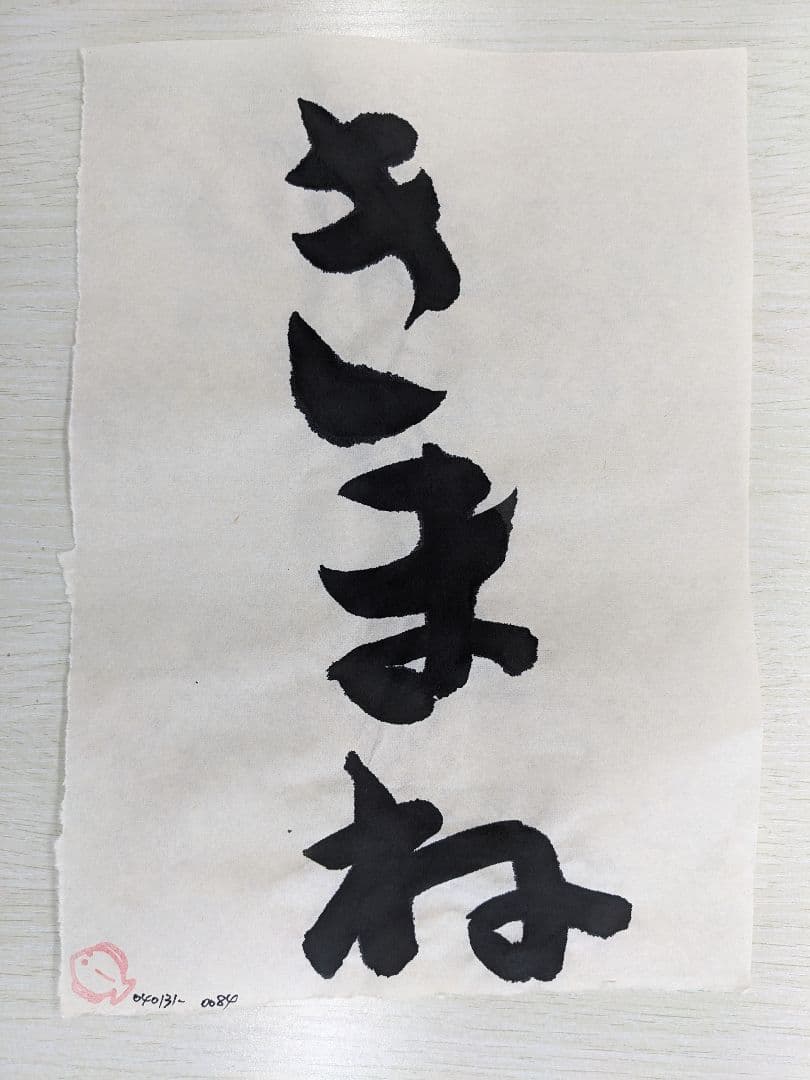 きまね
040131- 0084